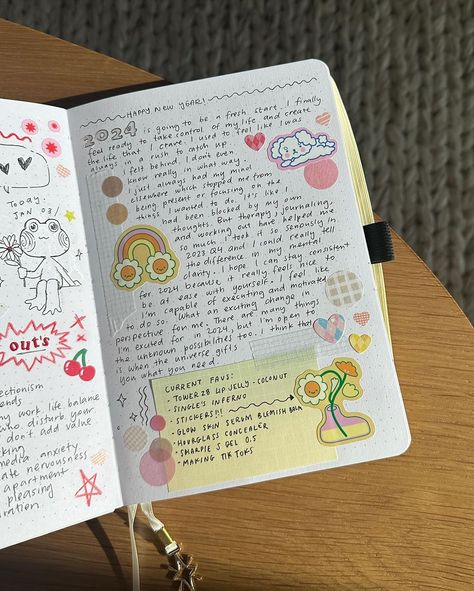 TODAY:
JAN 03/
OUT'S
work life balance
disturb your
don't add value
media anxiety
nervousness
apartment
pleasing
HAPPY NEW YEAR!
2024 is going to be a fresh start. I finally
feel ready to take control of my life and create
the life that I crave. I used to feel like I was
always in a rush to catch up
felt behind. I don't even
know really in what way.
I just always had my mind
elsewhere which stopped me from
being present or focusing on the
things I wanted to do. It's like I
had been blocked by my own
thoughts. But therapy, journaling,
and working out have helped me
so much. I took it so seriously in
2023 Q4 and I could really tell
the difference in my mental
clarity. I hope I can stay consistent
for 2024 because it really feels nice to
be at ease with yourself. I feel like
I'm capable of executing and motivated
to do so. What an exciting change in
perspective for me. There are many things
I'm excited for in 2024, but I'm open to
the unknown possibilities too. I think that
is when the universe gifts
you what you need.
CURRENT FAVS:
- TOWER 28 LIP JELLY - COCONUT
- SINGLE'S INFERNO
- STICKERS!!!
- GLOW SKIN SERUM BLEMISH BALM
- HOURGLASS CONCEALER
- SHARPIE S GEL 0.5
- MAKING TIKTOKS